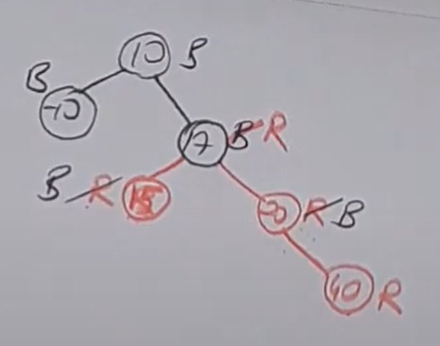 10 B
B
-10
17 B R
B R 15
20 R B
40 R